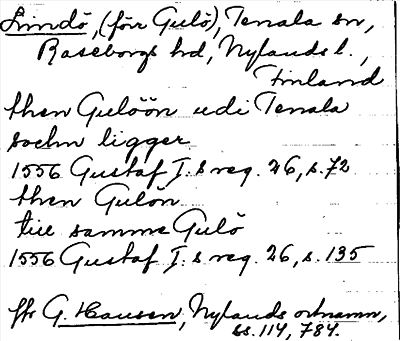 Lindö, (förr Gulö), Tenala sn,
Raseborgs hd, Nylands l.,
Finland
then Gulöön udi Tenala
sochn ligger
1556 Gustaf I:s reg. 26, s. 72
then Gulön
till samme Gulö
1556 Gustaf I:s reg. 26, s. 135
Jfr G. Hausen, Nylands ortnamn,
ss. 114, 784.